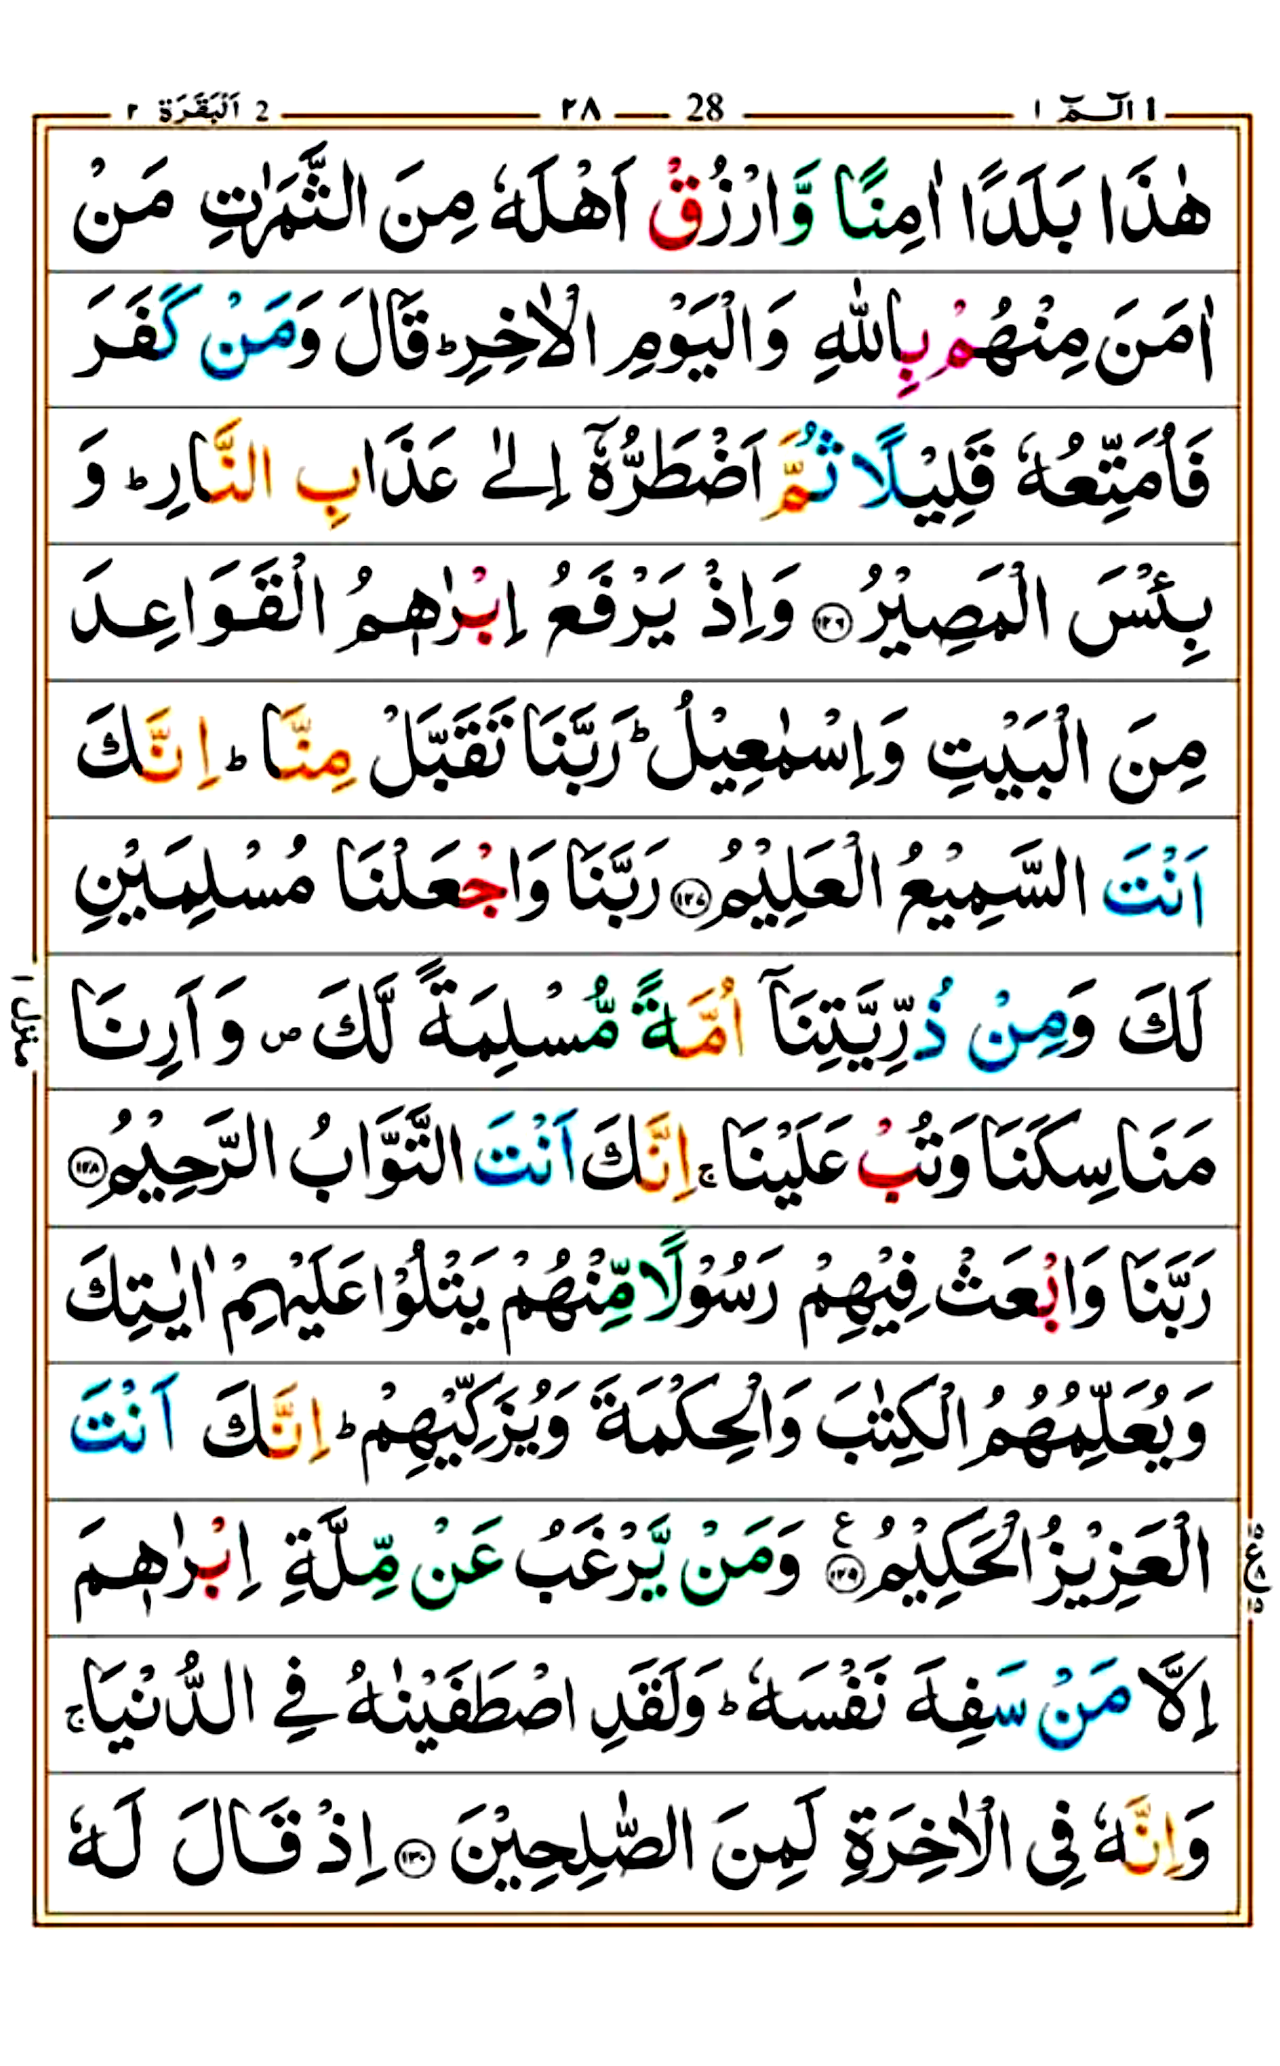 ١ الٓـمّٓ ١ 28 ٢٨ 2 اَلْبَقَرَة ٢
هٰذَا بَلَدًا اٰمِنًا وَّارْزُقْ اَهْلَهٗ مِنَ الثَّمَرٰتِ مَنْ
اٰمَنَ مِنْهُمْ بِاللّٰهِ وَالْيَوْمِ الْاٰخِرِ ؕ قَالَ وَمَنْ كَفَرَ
فَاُمَتِّعُهٗ قَلِيْلًا ثُمَّ اَضْطَرُّهٗۤ اِلٰى عَذَابِ النَّارِ ؕ وَ
بِئْسَ الْمَصِيْرُ ﴿۱۲۶﴾ وَاِذْ يَرْفَعُ اِبْرٰهٖمُ الْقَوَاعِدَ
مِنَ الْبَيْتِ وَاِسْمٰعِيْلُ ؕ رَبَّنَا تَقَبَّلْ مِنَّا ؕ اِنَّكَ
اَنْتَ السَّمِيْعُ الْعَلِيْمُ ﴿۱۲۷﴾ رَبَّنَا وَاجْعَلْنَا مُسْلِمَيْنِ
لَكَ وَمِنْ ذُرِّيَّتِنَاۤ اُمَّةً مُّسْلِمَةً لَّكَ ۪ وَاَرِنَا
مَنَاسِكَنَا وَتُبْ عَلَيْنَا ۚ اِنَّكَ اَنْتَ التَّوَّابُ الرَّحِيْمُ ﴿۱۲۸﴾
رَبَّنَا وَابْعَثْ فِيْهِمْ رَسُوْلًا مِّنْهُمْ يَتْلُوْا عَلَيْهِمْ اٰيٰتِكَ
وَيُعَلِّمُهُمُ الْكِتٰبَ وَالْحِكْمَةَ وَيُزَكِّيْهِمْ ؕ اِنَّكَ اَنْتَ
الْعَزِيْزُ الْحَكِيْمُ ﴿۱۲۹﴾ ع وَمَنْ يَّرْغَبُ عَنْ مِّلَّةِ اِبْرٰهٖمَ
اِلَّا مَنْ سَفِهَ نَفْسَهٗ ؕ وَلَقَدِ اصْطَفَيْنٰهُ فِي الدُّنْيَا ۚ
وَاِنَّهٗ فِى الْاٰخِرَةِ لَمِنَ الصّٰلِحِيْنَ ﴿۱۳۰﴾ اِذْ قَالَ لَهٗ
منزل ١
١٥ ع ٨ ١٥